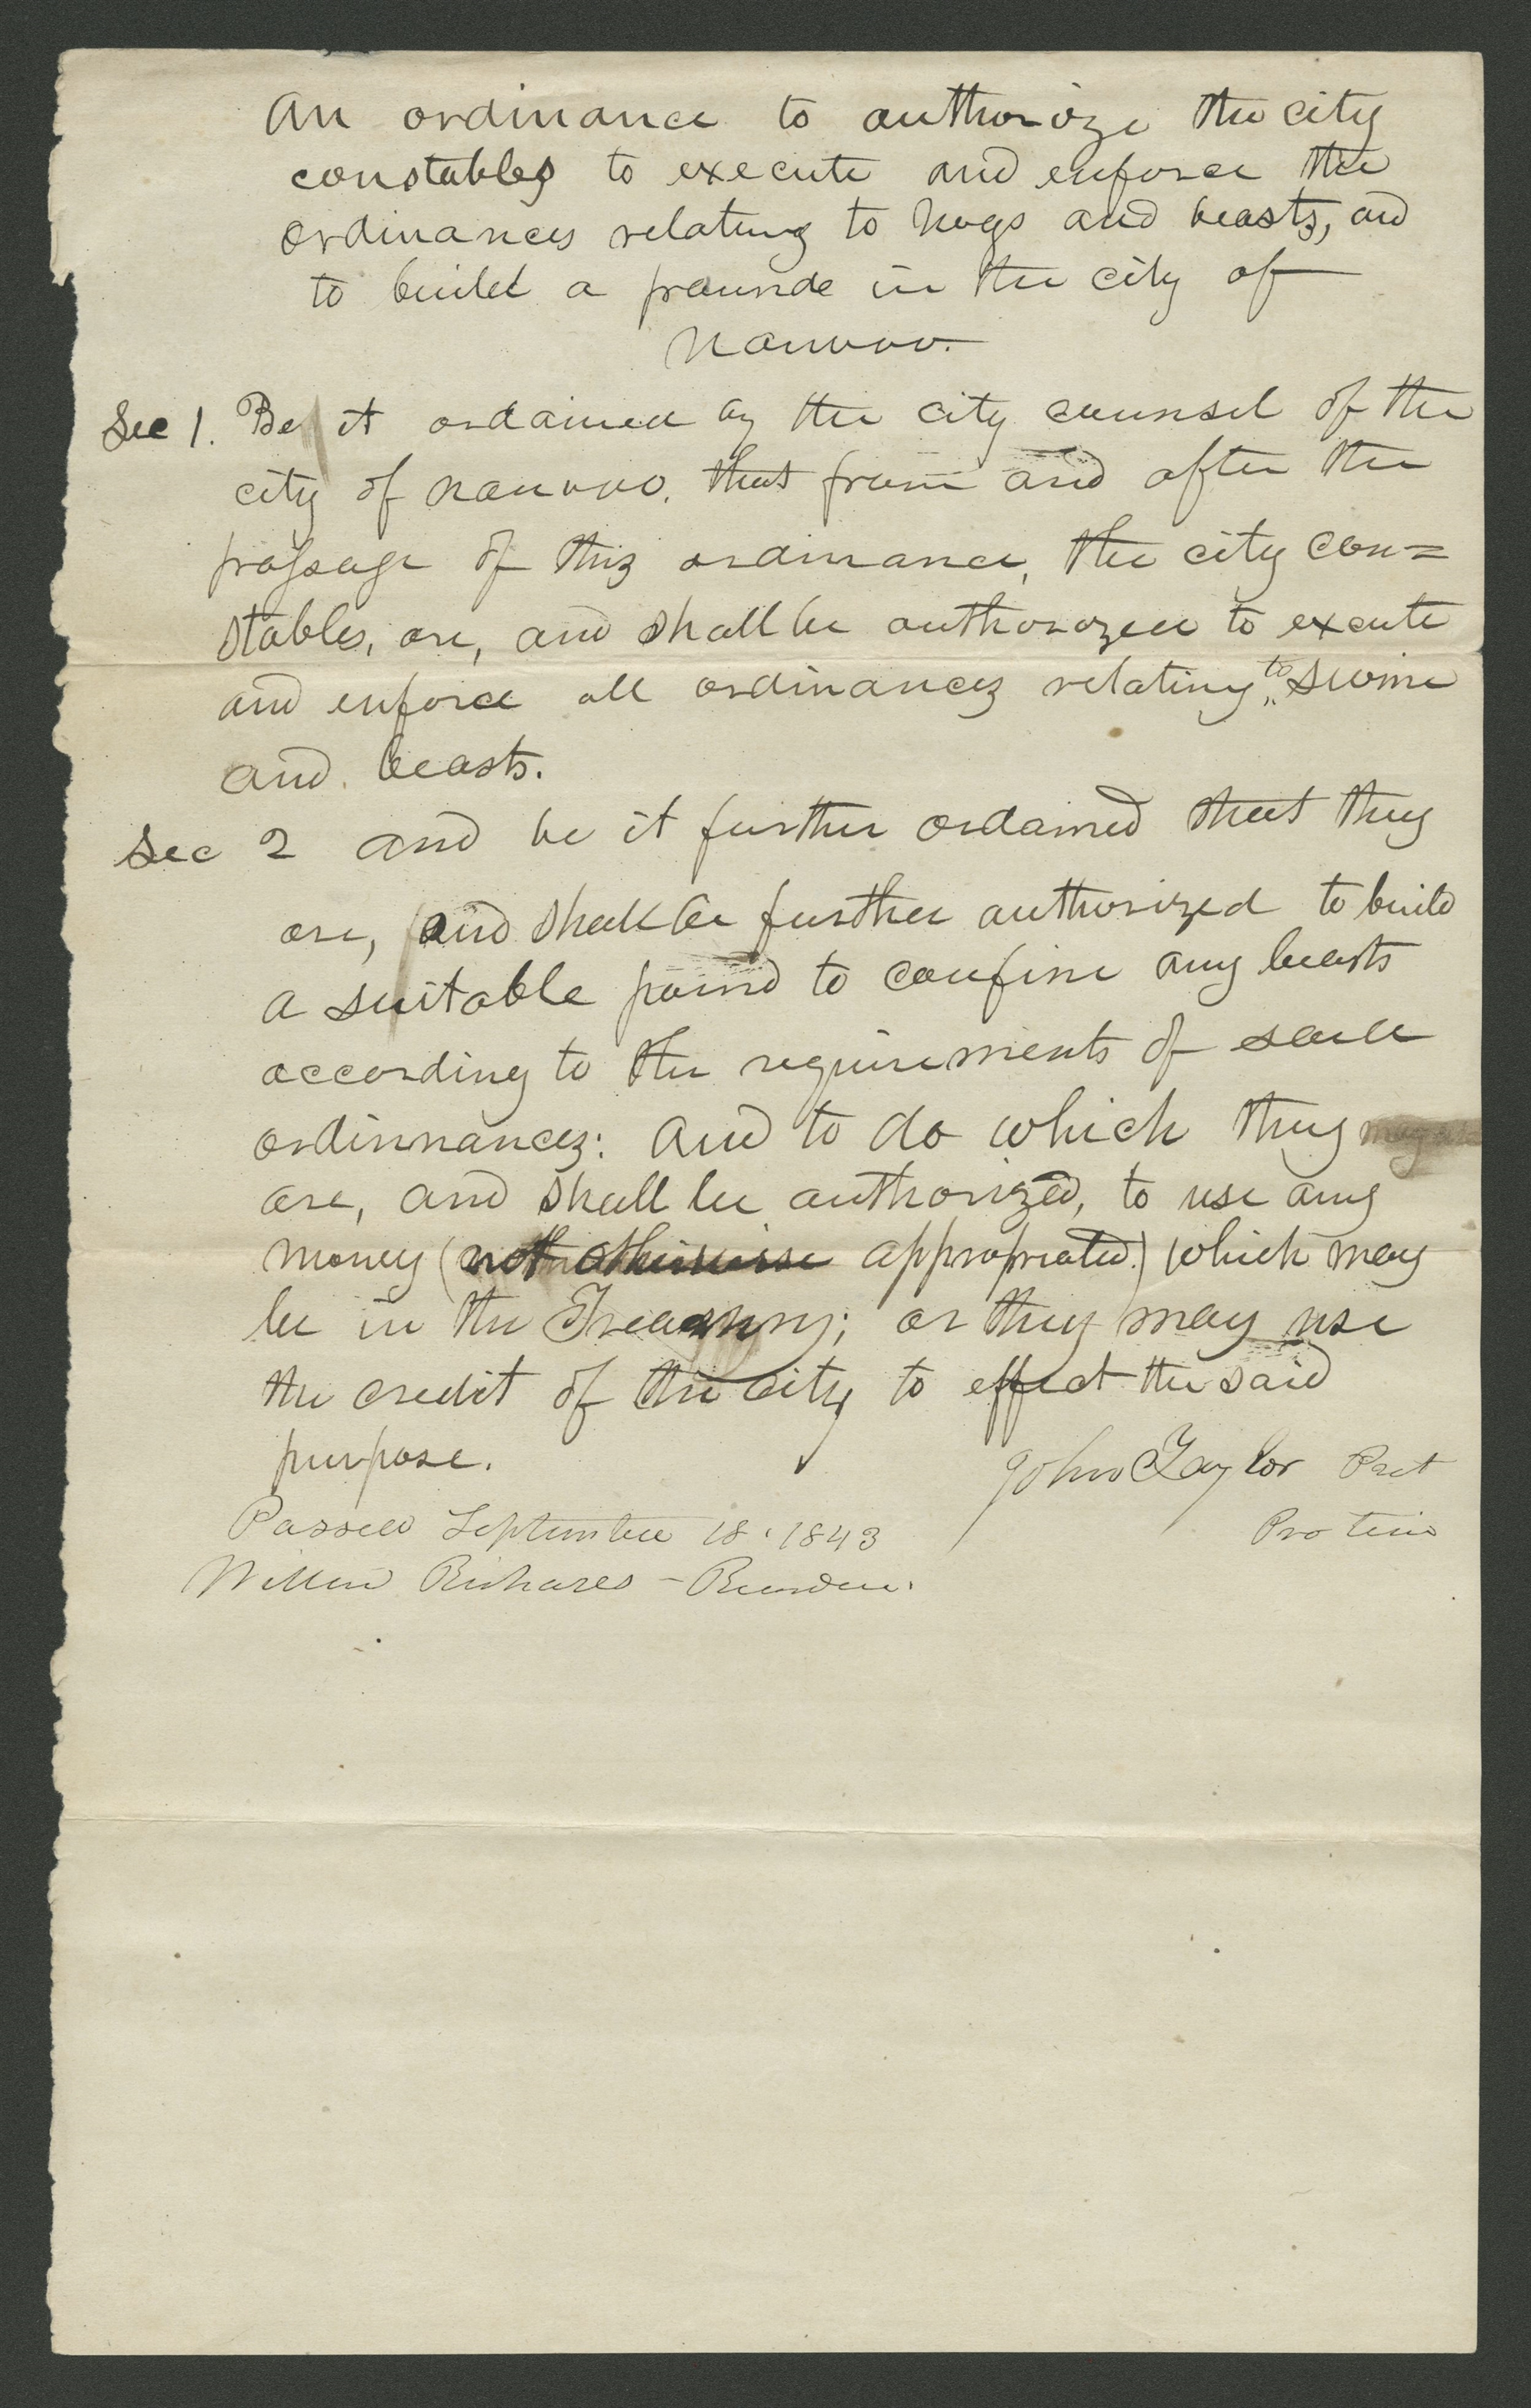 An ordinance to authorize the city
constables to execute and enforce the
ordinances relating to hogs and beasts, and
to build a pounde in the city of
Nauvoo.
Sec 1. Be it ordained by the city counsel of the
city of nauvoo. that from and after the
passage of this ordinance, the city con=
stables, are, and shall be authorozed to excute
and enforce all ordinances relating to swine
and beasts.
Sec 2 and be it further ordained that they
are, and shall be further authorized to build
a suitable pound to confine any beasts
according to the requirements of said
ordinnances: and to do which they may
are, and shall be authorized, to use any
money (not otherwise appropriated.) which may
be in the Treasury; or they may use
the credit of the city to effect the said
purpose.
John Taylor Prest
Pro tem
Passed September 18, 1843
Willard Richards - Recorder.